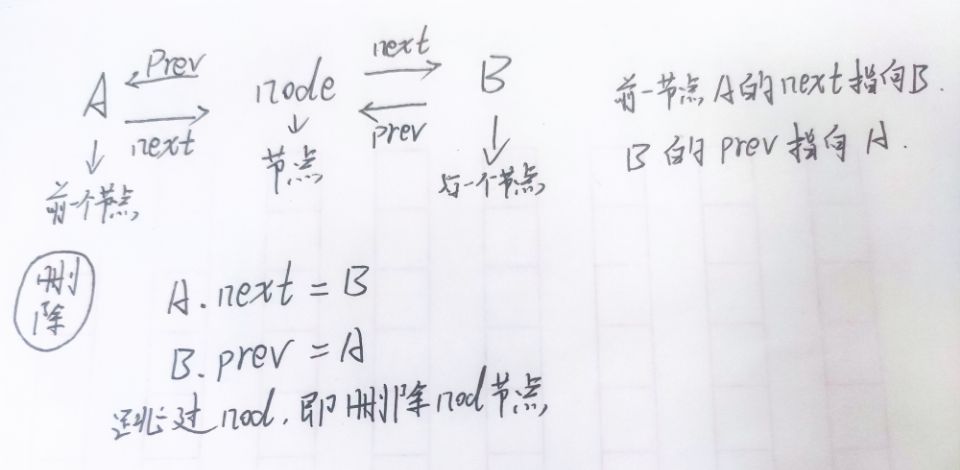 Prev next
A node B
next prev
前一个节点 节点 后一个节点
前一节点 A的next指向B.
B的prev指向A.
删
除
A.next=B
B.prev=A
跳过nod,即删除nod节点